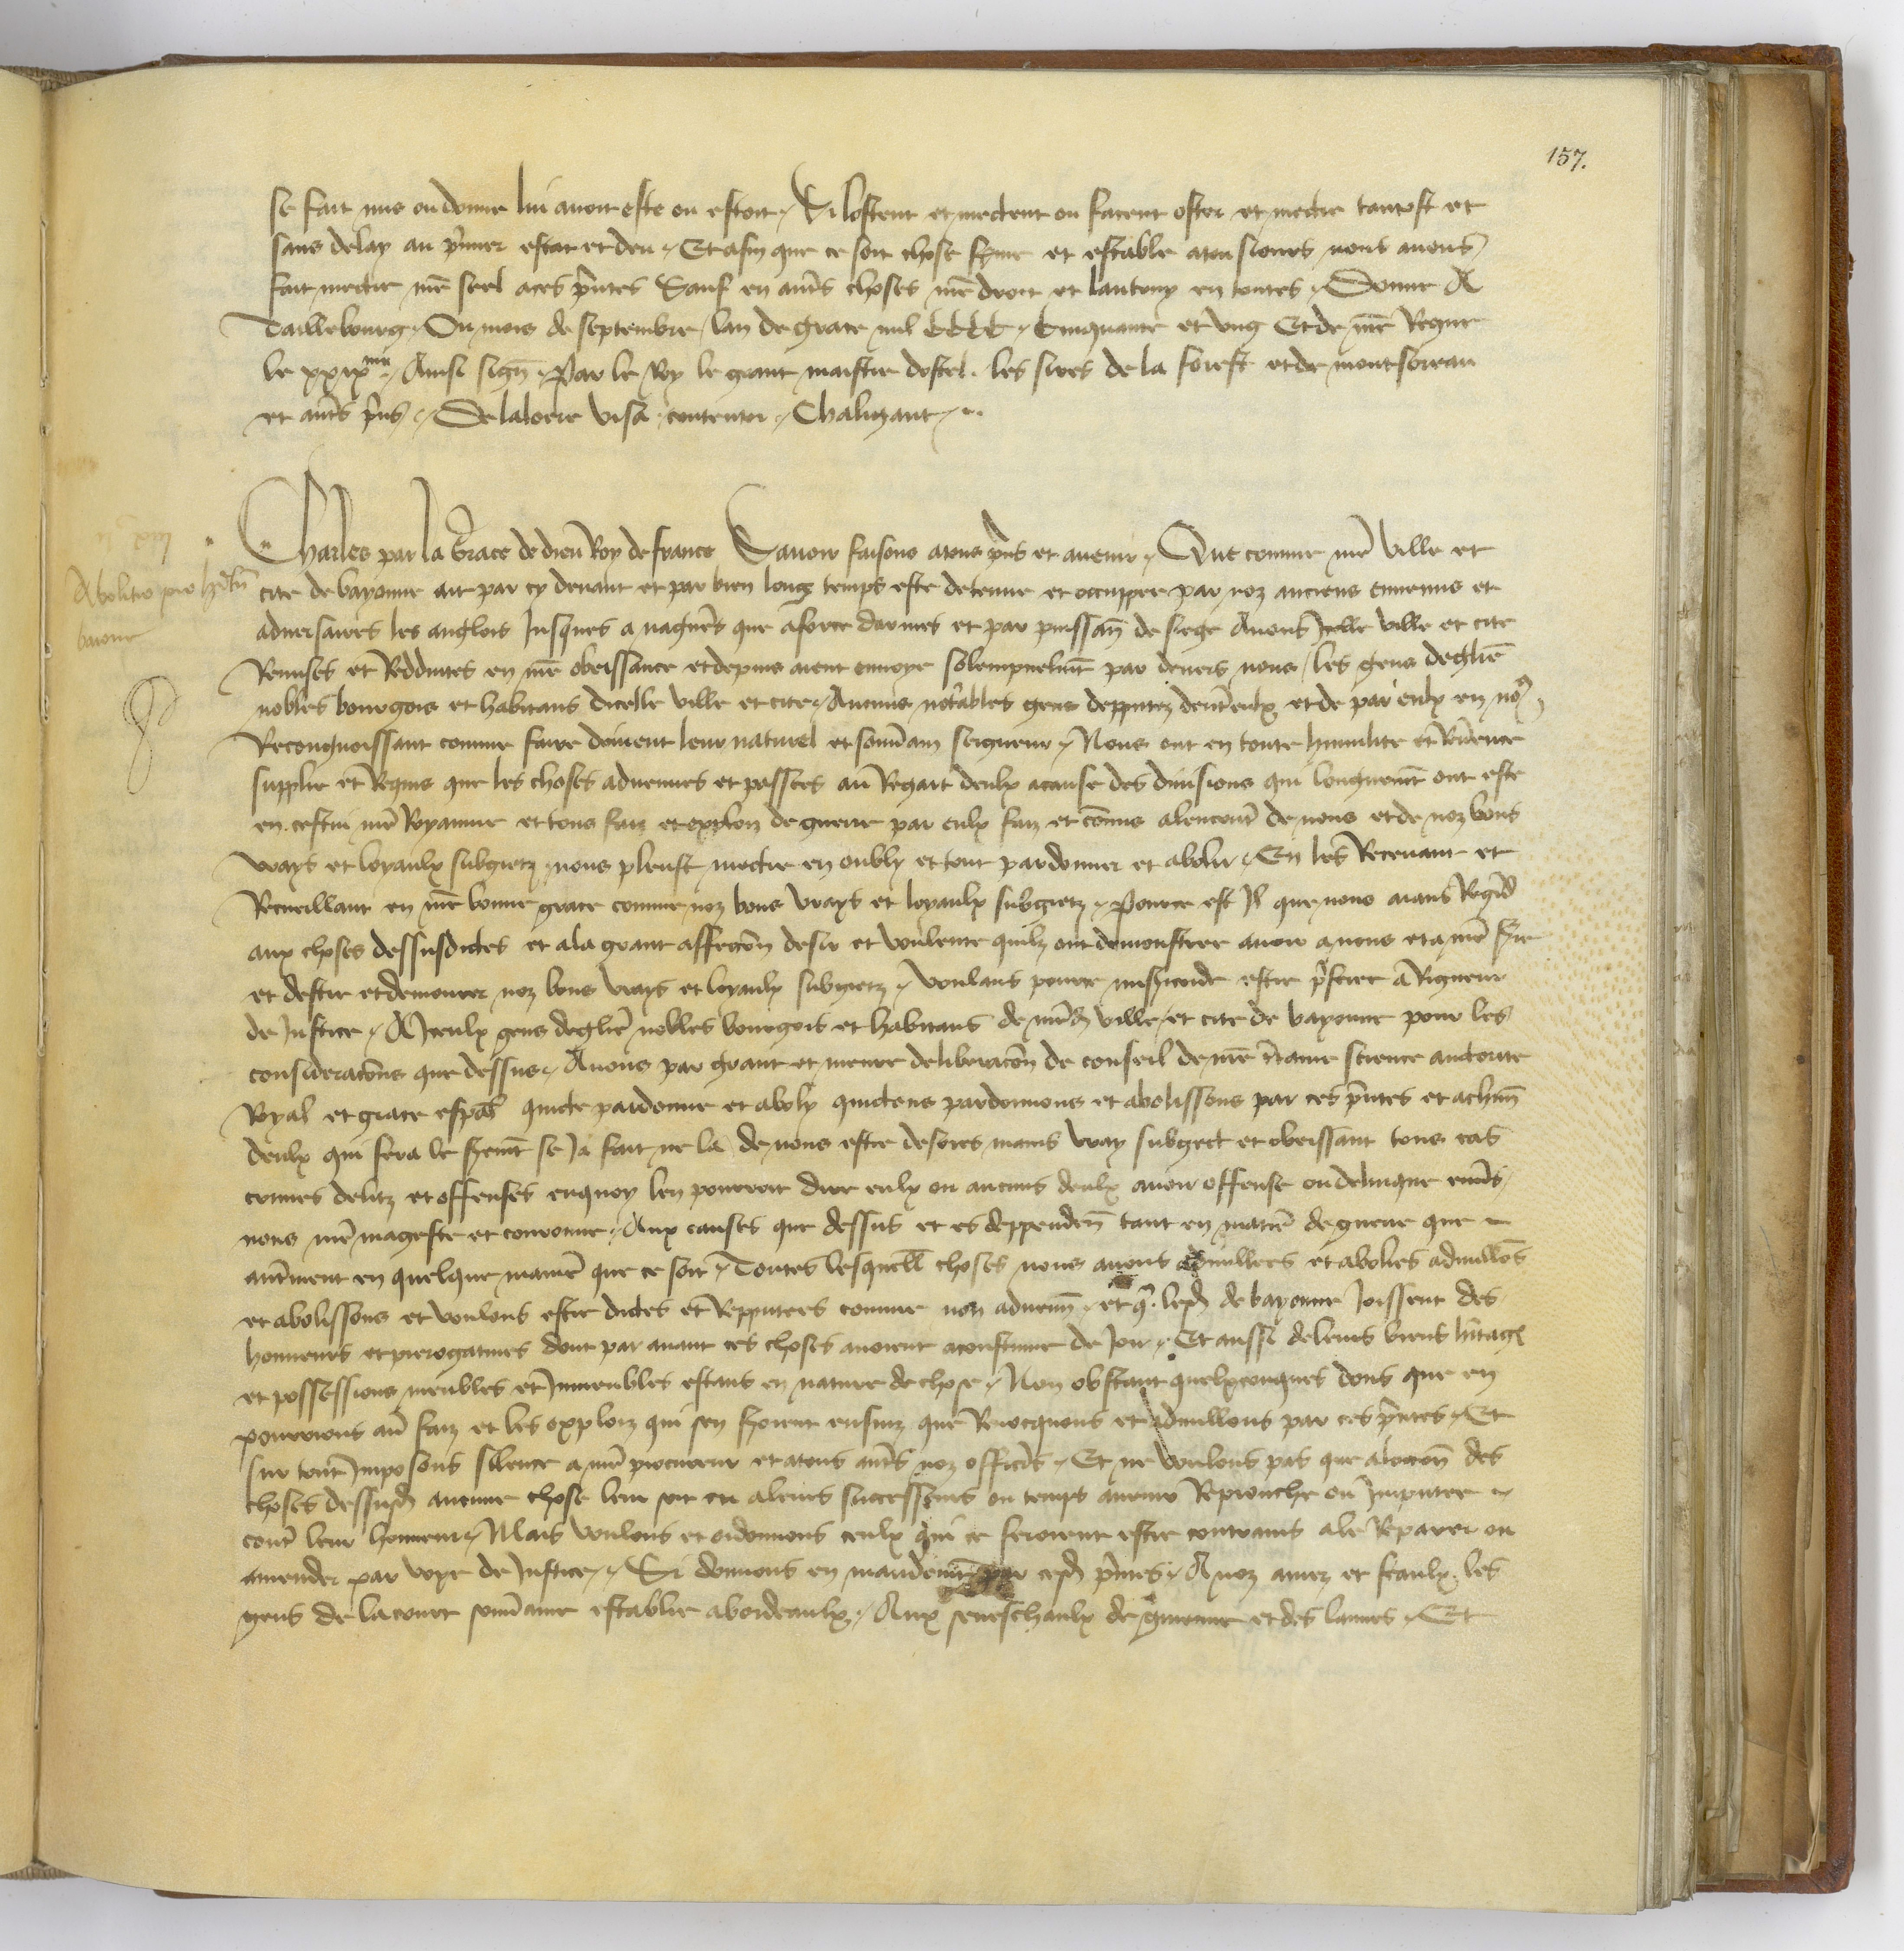 157.
se fait mis ou donne lui avoit este ou estoit, Si lostent et mectent ou facent oster et mectre tantost et
sans delay au p̃mier estat et deu, Et afin que ce soit chose ferme et estable a tousiours nous avons
fait mectre nr̃e seel a ces p̃ntes Sauf en autr̃s choses nr̃e droit et lautruy en toutes, Donne A
Taillebourg, Ou mois de septembre lan de grace mil CCCC, Cinquante et ung Et de nr̃e Regne
le xxixme, Ainsi sign̄, Par le Roy le grant maistre dostel. les sires de la forest et de montsoreau
et autr̃s p̃ns, De laloere visa, contentor, Chaligaut,
Charles par la Grace de dieu Roy de france Savoir faisons a tous p̃ns et avenir, Que comme nr̃e ville et
Abolitio pro
baione
cite de bayonne ait par cy devant et par bien long temps este detenue et occuppee par noz anciens ennemis et
adversaires les anglois Jusques a nagueres que a force darmes et par puissan̄ de siege Avons Jcelle ville et cite
Remises et Redduites en nr̃e obeissance et depuis aient envoye solempnelmt̃ par devers nous, les gens deglise
nobles bourgois et habitans dicelle ville et cite, Aucuns notables gens depputez dentr̃eulx et de par eulx en
Recongnoissant comme faire doivent leur naturel et souv̄ain seigneur, Nous ont en toute humilite et Rev̄ence
supplie et Requis que les choses advenues et passees au Regart deulx a cause des divisions qui longuemt̃ ont este
en cestui nr̃e Royaume et tous faiz et exploiz de guerre par eulx faiz et com̄is alencontr̃ de nous et de noz bons
vrays et loyaulx subgietz, nous pleust mectre en oubly et tout pardonner et abolir, En les Recevant et
Recueillant en nr̃e bonne grace comme noz bons vrays et loyaulx subgietz, Pource est Jl que nous aians Regard
aux choses dessusdictes et a la grant affecc̄on desir et voulente quilz ont demonstree avoir a nous et a nr̃e s̃rie
et destre et demourer noz bons vrays et loyaulx subgietz, voulans pource mis̃icorde estre p̃feree a Rigueur
de Justice, A Jceulx gens deglise nobles bourgois et habitans de nr̃ed̃ ville et cite de bayonne pour les
considerac̄ons que dessus, Avons par grant et meure deliberac̄on de conseil de nr̃e c̃taine science auctorite
Royal et grace esp̃al quicte pardonne et aboly quictons pardonnons et abolissons par ces p̃ntes et a chũn
deulx qui fera le s̃remt̃ se Ja fait ne la de nous estre desores mains vray subgect et obeissant tous cas
crimes delitz et offenses enquoy len pourroit dire eulx ou aucuns deulx avoir offense ou delinque env̄s
nous nr̃e mageste et couronne, Aux causes que dessus et es deppenden̄ tant en matier̃ de guerre que
autr̃ment en quelque manier̃ que ce soit, Toutes lesquell̃ choses nous avons adnullees et abolies adnullons
et abolissons et voulons estre dictes et Repputees comme non advenu͠, et q̃ lesd̃ de bayonne Joissent des
honneurs et prerogatives dont par avant ces choses avoient acoustume de Joir, Et aussi de leurs biens hr̃itag̃
et possessions meubles et Jmmeubles estans en nature de chose, Non obstant quelxconques dons que en
pourrions av̄ faiz et les exploiz qui sen seroient ensuiz que Revocquons et adnullons par ces p̃ntes, Et
sur tout Jmposons silence a nr̃e procureur et a tous autr̃s noz officiers, Et ne voulons pas que alocc̄on des
choses dessusd̃ aucune chose leur soit ou a leurs successeurs ou temps avenir Reprouche ou Jmputee
contr̃ leur honneur, Mais voulons et ordonnons ceulx qui ce feroient estre contrains a le Reparer ou
amender par voye de Justice, Si donnons en mandemt̃ par cesd̃ p̃ntes, A noz amez et feaulx les
gens de la court souv̄aine establie a bordeaulx, Aux seneschaulx de guienne et des lannes, Et